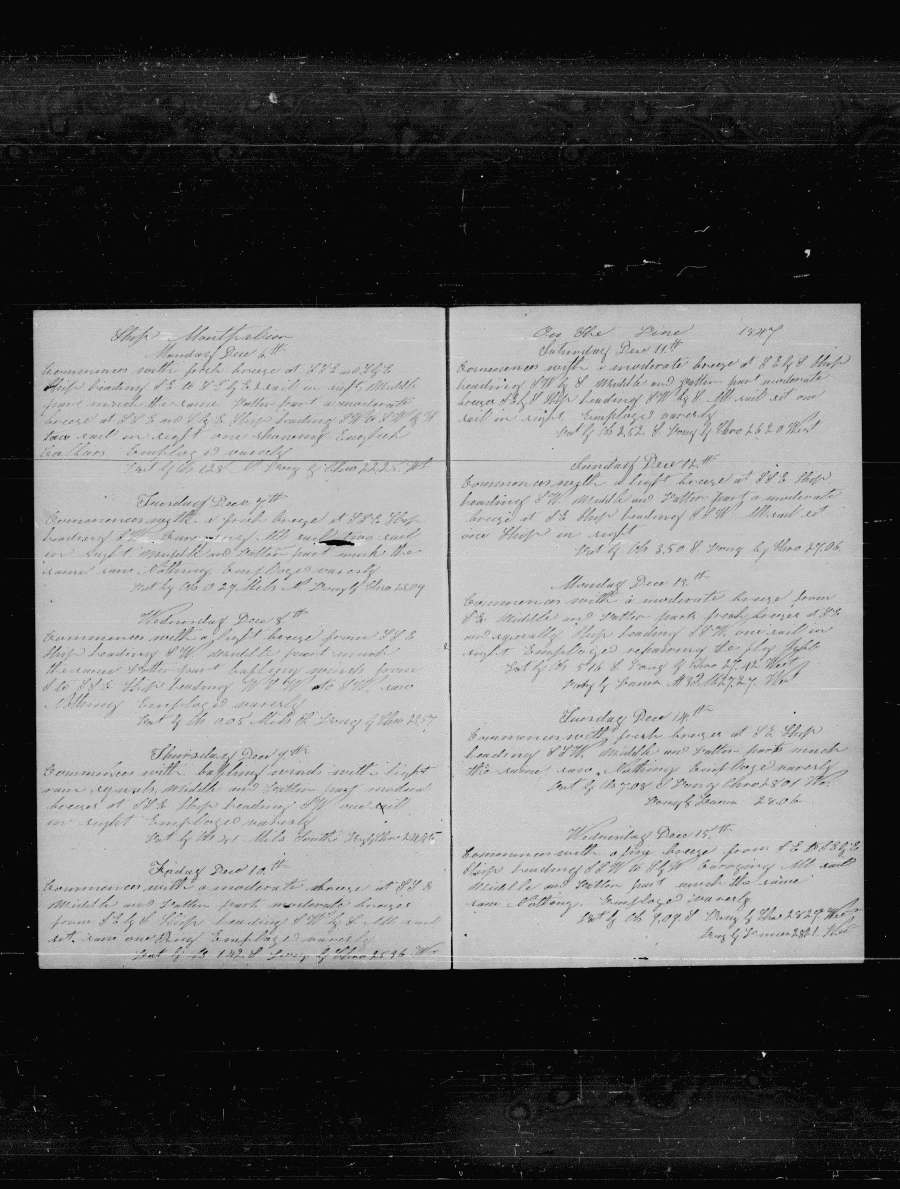 Ship Montpelier
Monday Dec 6th
Commences with fresh breeze at S S E and S by E
Ship heading S E to S E by E 2 sail in sight Middle
part much the same Latter part a moderate
breeze at S S E and S by E Ship heading S W to S W by W
two sail in sight one showing English
Collors Employed vaersly
Lat by Ob 1.28 N Long by Chro 22.28 Wt
Tuesday Dec 7th
Commences with a fresh breeze at S S E Ship
heading S W All sail
in sight Middle and Latter part much the
same saw Nothing Employed vaersly
Lat by Ob 0 27 Mils N Long by Chro 23.09
Wednesday Dec 8th
Commences with a light breeze from S S E
Ship heading S W Middle part much
the same Latter part bafling winds from
S to S S E Ship heading W S W to S W saw
Nothing Employed vaersly
Lat by Ob 0.05 Mils S Long by Chro 23.57
Thursday Dec 9th
Commences with bafling winds with light
rain squals Middle and Latter part modera
breezes at S S E Ship heading S W one sail
in sight Employed vaersly
Lat by Ob 41 Mils South Long by Chro 24.45
Friday Dec 10th
Commences with a moderate breeze at S S E
Middle and Latter part moderate breezes
from S E by S Ship heading S W by S All sail
set saw one Employed vaersly
Lat by Ob 1.42 S Long by Chro 25 36 W
On the Line 1847
Saturday Dec 11th
Commences with a moderate breeze at S E by S Ship
heading S W by S Middle and Latter part moderate
breezes S E by S Ship heading S W by S All sail set one
sail in sight Employed vaersly
Lat by Ob 2.52 S Long by Chro 26 20 West
Sunday Dec 12th
Commences with a light breeze at S S E Ship
heading S W Middle and Latter part a moderate
breeze at S E Ship heading S S W All sail set
one Ship in sight
Lat by Ob 3.50 S Long by Chro 27.06
Monday Dec 13th
Commences with a moderate breeze from
S E Middle and Latter part fresh breezes at S E
and squally Ship heading S S W one sail in
sight Employed repairing the fly Jybb
Lat by Ob 5 16 S Long by Chro 27.42 West
Long by Lunar 27.27 West
Tuesday Dec 14th
Commences with fresh breezes at S E Ship
heading S S W Middle and Latter part much
the same saw Nothing Employed vaersly
Lat by Ob 7.08 S Long Chro 28 01 W
Long by Lunar 28.06
Wednesday Dec 15th
Commences with a fine breeze from S E to S E by E
Ship heading S S W to S by W Carrying All sail
Middle and Latter part much the same
saw Nothing Employed vaersly
Lat by Ob 9.09 S Long by Chro 28 27 West
Long by Lunar 28 21 West